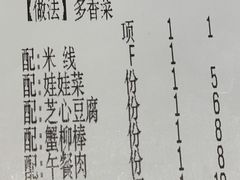 【做法】多香菜
项 1 1
配:米 线 F 1 1
配:娃娃菜 份 1 5
配:芝心豆腐 份 1 6
配:蟹柳棒 份 1 8
配:午餐肉 份 1 8
份 1 10